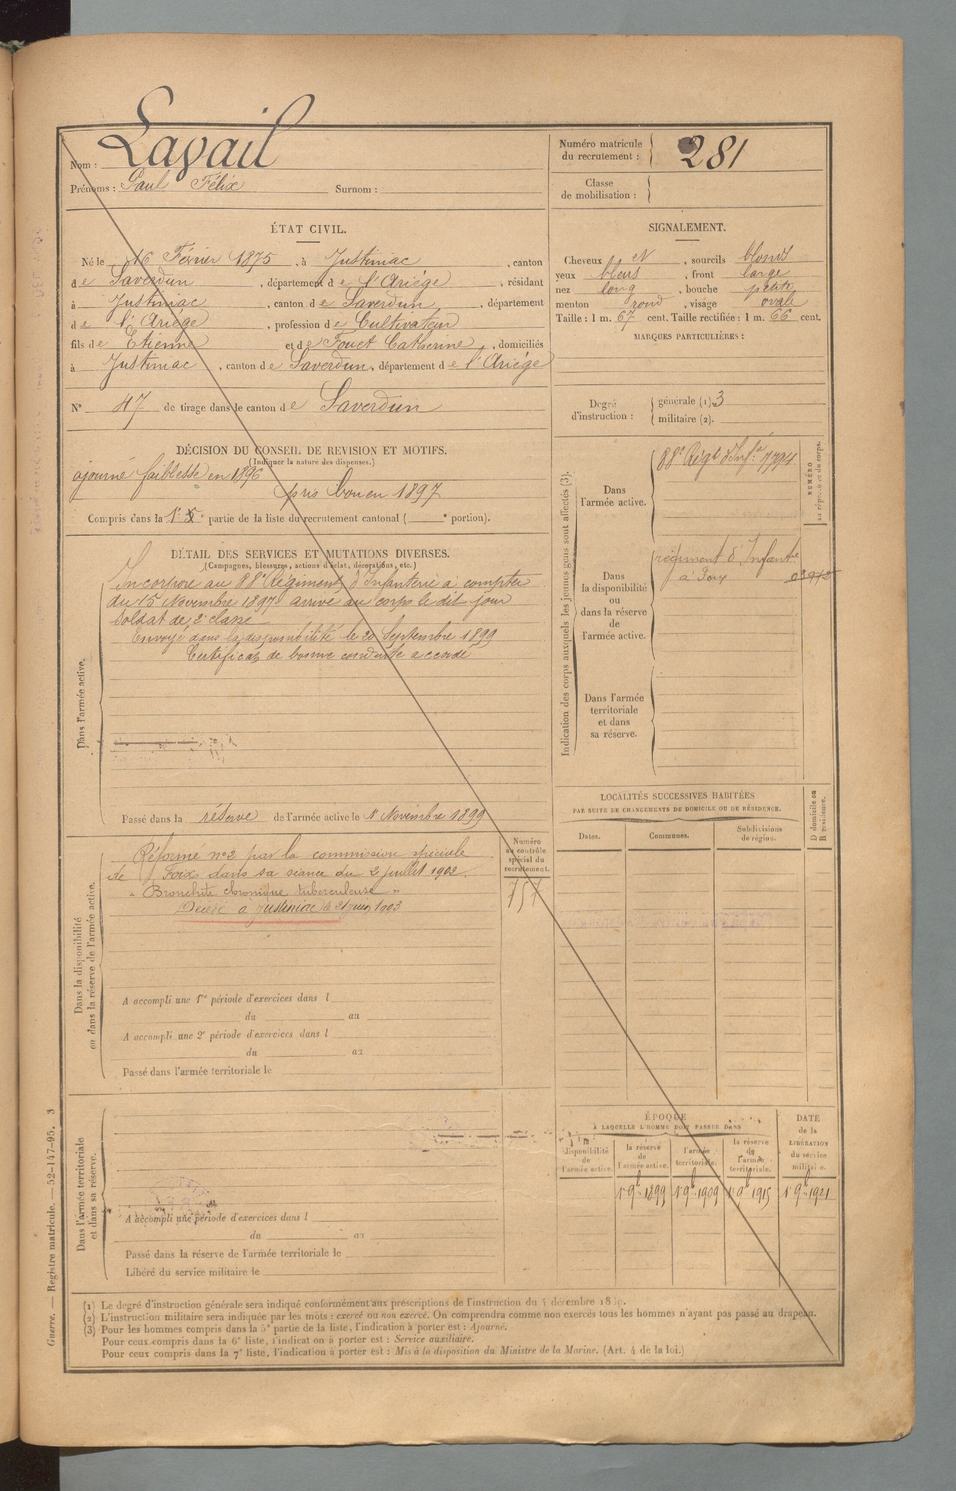 Nom : Lavail
Prénoms : Paul Félix Surnom :
Numéro matricule du recrutement : 281
Classe de mobilisation :
ÉTAT CIVIL.
Né le 16 Février 1875, à Justiniac, canton
de Saverdun, département de l'Ariége, résidant
à Justiniac, canton de Saverdun, département
de l'Ariége, profession de Cultivateur
fils de Etienne et de Fouet Catherine, domiciliés
à Justiniac, canton de Saverdun, département de l'Ariége
N° 47 de tirage dans le canton de Saverdun
SIGNALEMENT.
Cheveux et, sourcils blonds
yeux bleus, front large
nez long, bouche petite
menton rond, visage ovale
Taille : 1 m. 67 cent. Taille rectifiée : 1 m. 66 cent.
MARQUES PARTICULIÈRES :
Degré d'instruction : générale (1). 3
militaire (2).
DÉCISION DU CONSEIL DE REVISION ET MOTIFS.
(Indiquer la nature des dispenses.)
ajourné faiblesse en 1896
pris bon en 1897
Compris dans la 1e partie de la liste du recrutement cantonal ( e portion).
DÉTAIL DES SERVICES ET MUTATIONS DIVERSES.
(Campagnes, blessures, actions d'éclat, décorations, etc.)
Dans l'armée active.
Incorporé au 88e Régiment d'Infanterie à compter
du 15 Novembre 1897 arrivé au corps le dit jour
soldat de 2e classe
Envoyé dans la disponibilité le 20 Septembre 1899
Certificat de bonne conduite accordé
Passé dans la réserve de l'armée active le 1 Novembre 1899
Indication des corps auxquels les jeunes gens sont affectés (3).
NUMÉRO au répertoire du corps.
Dans l'armée active.
88e Régt d'Infie 7794
Dans la disponibilité ou dans la réserve de l'armée active.
régiment d'Infantie
à Foix
Dans l'armée territoriale et dans sa réserve.
LOCALITÉS SUCCESSIVES HABITÉES
PAR SUITE DE CHANGEMENTS DE DOMICILE OU DE RÉSIDENCE.
Dates. Communes. Subdivisions de région. D domicile ou R résidence.
Numéro au contrôle spécial du recrutement.
757
Dans la disponibilité ou dans la réserve de l'armée active.
Réformé n°2 par la commission spéciale
de Foix dans sa séance du 2 juillet 1902.
"Bronchite chronique tuberculeuse"
Décédé à Justiniac le 21 juin 1903
A accompli une 1re période d'exercices dans l
du au
A accompli une 2e période d'exercices dans l
du au
Passé dans l'armée territoriale le
Dans l'armée territoriale et dans sa réserve.
A accompli une période d'exercices dans l
du au
Passé dans la réserve de l'armée territoriale le
Libéré du service militaire le
ÉPOQUE
A LAQUELLE L'HOMME DOIT PASSER DANS
la disponibilité de l'armée active. la réserve de l'armée active. l'armée territoriale. la réserve de l'armée territoriale.
DATE de la LIBÉRATION du service militaire.
1 9b 1899 1 9b 1909 1 9b 1915 1 9b 1921
(1) Le degré d'instruction générale sera indiqué conformément aux prescriptions de l'instruction du 4 décembre
(2) L'instruction militaire sera indiquée par les mots : exercé ou non exercé. On comprendra comme non exercés tous les hommes n'ayant pas passé au drapeau.
(3) Pour les hommes compris dans la 5e partie de la liste, l'indication à porter est : Ajourné.
Pour ceux compris dans la 6e liste, l'indication à porter est : Service auxiliaire.
Pour ceux compris dans la 7e liste, l'indication à porter est : Mis à la disposition du Ministre de la Marine. (Art. 4 de la loi.)
Guerre. — Registre matricule. — 52-147-95. 3